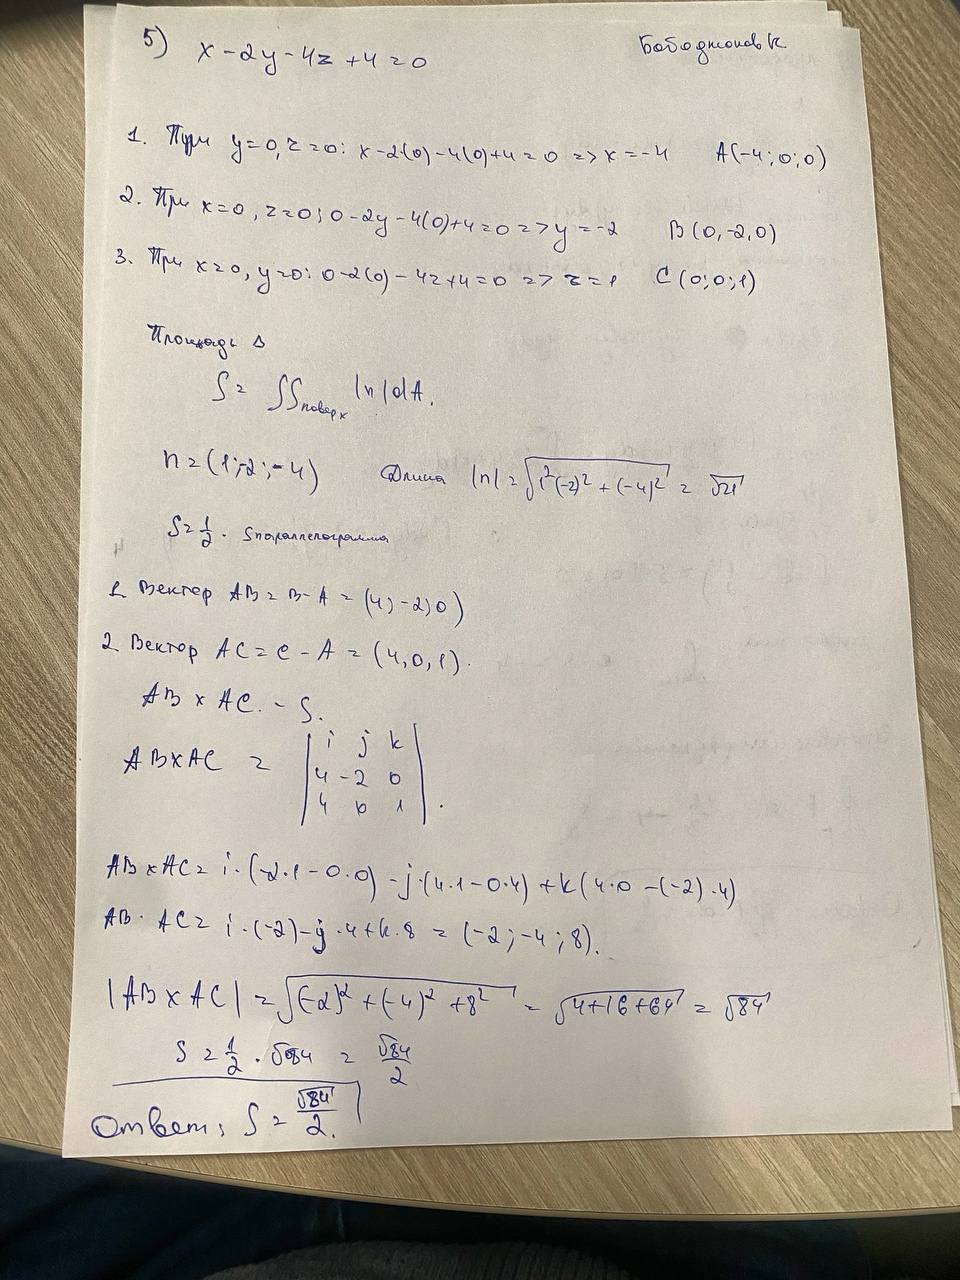 5) x - 2y - 4z + 4 = 0
Бободжонов К
1. При y=0, z=0: x-2(0)-4(0)+4=0 => x=-4 A(-4;0;0)
2. При x=0, z=0; 0-2y-4(0)+4=0 => y=-2 B(0,-2,0)
3. При x=0, y=0: 0-2(0)-4z+4=0 => z=1 C(0;0;1)
Площадь Δ
S = ∬поверх |n|dA.
n=(1;-2;-4) Длина |n| = √1²(-2)²+(-4)² = √21
S=1/2 · Sпараллелограмма
1. Вектор AB = B-A = (4;-2;0)
2. Вектор AC = C - A = (4,0,1).
AB × AC. - S.
AB×AC = | i j k |
| 4 -2 0 |
| 4 0 1 | .
AB×AC = i·(-2·1-0·0)-j·(4·1-0·4)+k(4·0-(-2)·4)
AB· AC = i·(-2)-j·4+k·8 = (-2;-4;8).
|AB×AC| = √(-2)²+(-4)²+8² = √4+16+64 = √84
S = 1/2 · √84 = √84/2
Ответ; S = √84/2.